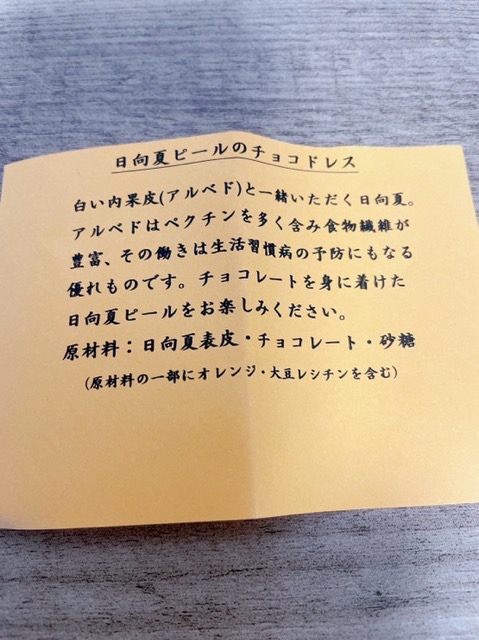 日向夏ピールのチョコドレス
白い内果皮(アルベド)と一緒いただく日向夏。
アルベドはペクチンを多く含み食物繊維が
豊富、その働きは生活習慣病の予防にもなる
優れものです。チョコレートを身に着けた
日向夏ピールをお楽しみください。
原材料：日向夏表皮・チョコレート・砂糖
(原材料の一部にオレンジ・大豆レシチンを含む)